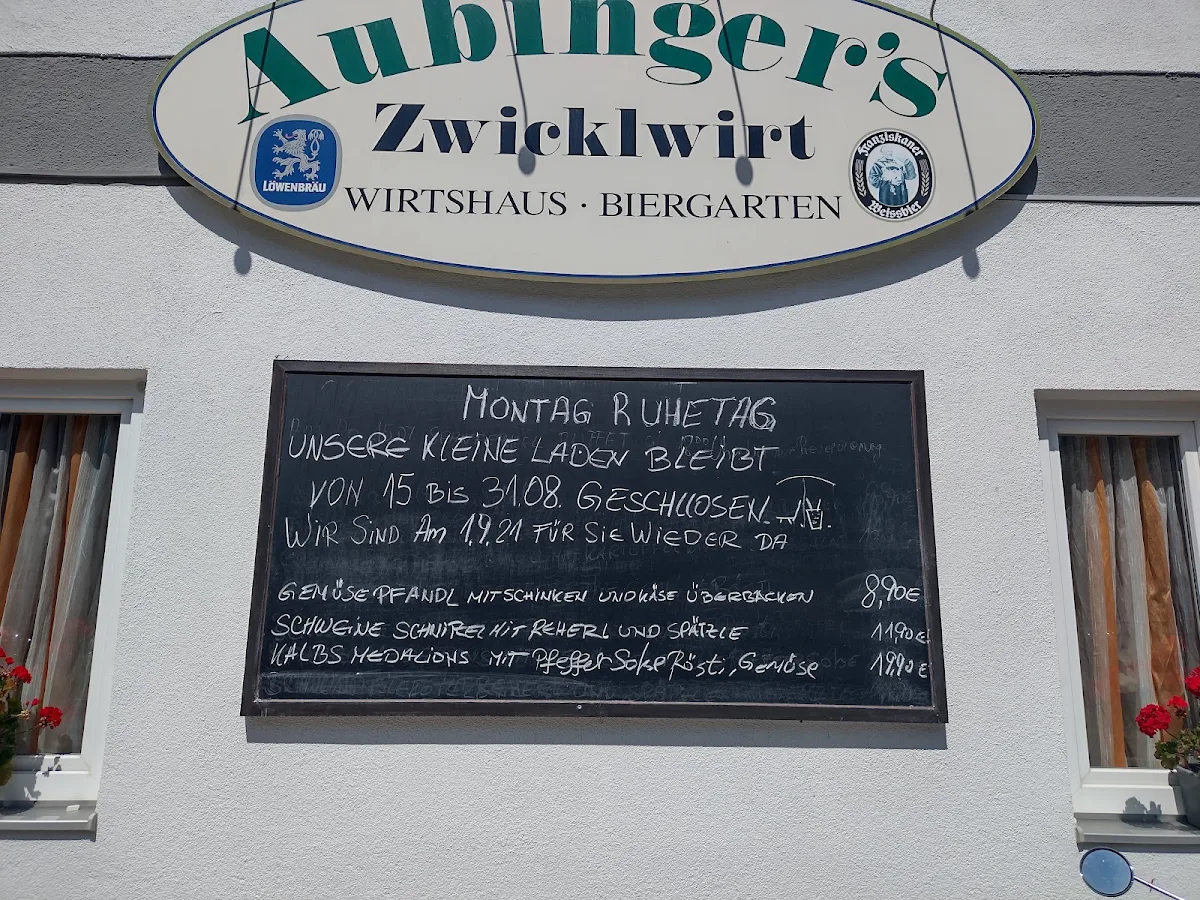 Aubinger's
Zwicklwirt
LÖWENBRÄU
Franziskaner
Weissbier
WIRTSHAUS · BIERGARTEN
MONTAG RUHETAG
UNSERE KLEINE LADEN BLEIBT
VON 15 BIS 31.08. GESCHLLOSEN.
WIR SIND AM 1.9.21 FÜR SIE WIEDER DA
GEMÜSE PFANDL MIT SCHINKEN UND KÄSE ÜBERBACKEN 8,90€
SCHWEINE SCHNIPEL MIT REHERL UND SPÄTZLE 11,90€
KALBS MEDALIONS MIT Pfeffer Soße Rösti, Gemüse 19,90€